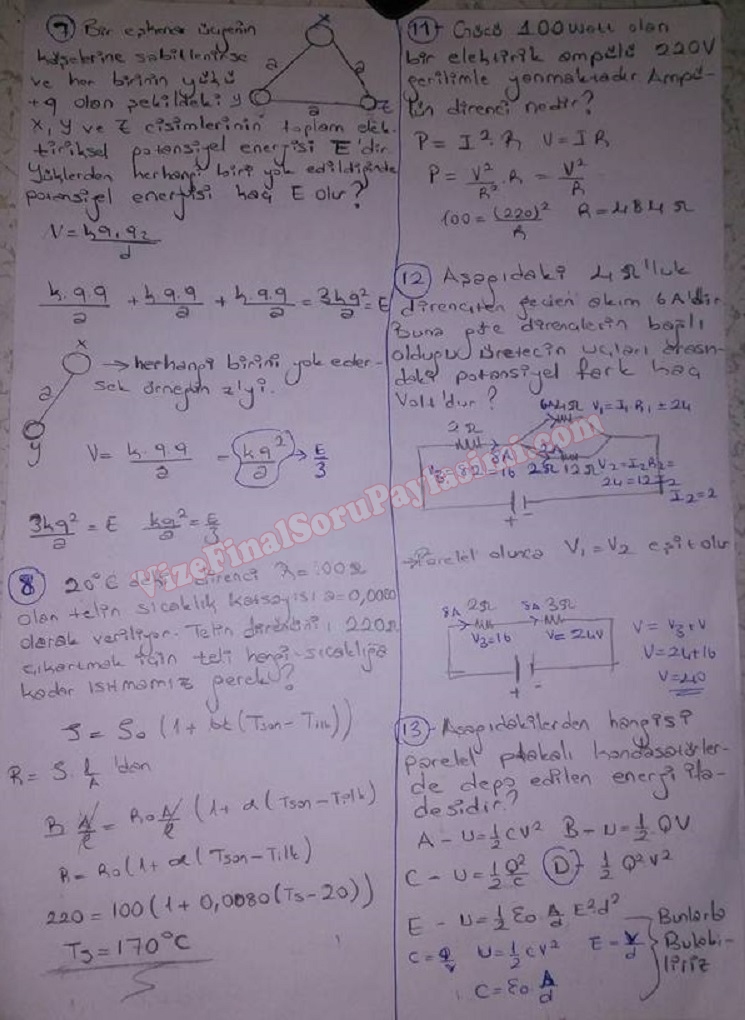 7 Bir eşkenar üçgenin
köşelerine sabitlenirse
ve her birinin yükü
+q olan şekildeki
X, Y ve Z cisimlerinin toplam elek-
tiriksel potansiyel enerjisi E'dir.
Yüklerden herhangi biri yok edildiğinde
potansiyel enerjisi kaç E olur?
X
a a
Y a Z
V = kq1q2 / d
k.q.q / a + k.q.q / a + k.q.q / a = 3kq² / a = E
X
a
Y
→ herhangi birini yok eder-
sek örneğin z'yi.
V = k.q.q / a = kq² / a → E / 3
3kq² / a = E kq² / a = E / 3
8 20°C deki direnci R = 100Ω
olan telin sıcaklık katsayısı α=0,0080
olarak veriliyor. Telin direncini 220Ω
çıkartmak için teli hangi sıcaklığa
kadar ısıtmamız gerek?
S = S0 (1 + α (Tson - Tilk))
R = S. L / A 'dan
R A / l = R0 A / l (1 + α (Tson - Tilk)
R = R0 (1 + α (Tson - Tilk)
220 = 100 (1 + 0,0080 (Ts - 20))
Ts = 170°C
11- Gücü 100 Watt olan
bir elektirik ampülü 220V
gerilimle yanmaktadır Ampü-
lün direnci nedir?
P = I². R V = I R
P = V² / R² . R = V² / R
100 = (220)² / R R = 484Ω
12 Aşağıdaki 4Ω'luk
dirençten geçen akım 6A'dir
Buna göre dirençlerin bağlı
olduğu üretecin uçları arasın-
daki potansiyel fark kaç
Volt'dur?
6A 4Ω V1 = I1 R1 = 24
2Ω 8A
V3 = 8.2 = 16 2A 12Ω V2 = I2 R2 =
24 = 12 I2
I2 = 2
+ -
→ Parelel olunca V1 = V2 eşit olur
8A 2Ω 8A 3Ω
V3=16 V = 24V
+ -
V = V3 + V
V = 24 + 16
V = 40
13- Aşağıdakilerden hangisi
parelel plakalı kondasatörler-
de depo edilen enerji ifa-
desidir?
A - U = 1/2 CV² B - U = 1/2 QV
C - U = 1/2 Q² / C D - 1/2 Q² V²
E - U = 1/2 ε0 A / d E² d²
C = Q / V U = 1/2 CV² E = V / d
C = ε0 A / d
Bunlarla
Bulabi-
liriz
VizeFinalSoruPaylasimi.com